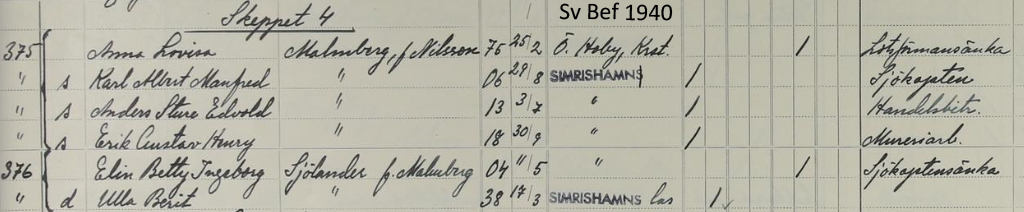 Skeppet 4 Sv Bef 1940
375 Anna Lovisa Malmberg, f Nilsson 75 25/2 Ö. Hoby, Krst. / Lotsförmansänka
" s Karl Albrit Manfred " 06 29/8 SIMRISHAMNS / Sjökapten
" s Anders Sture Edvold " 13 3/7 " / Handelsbitr.
" s Erik Gustav Henry " 18 30/9 " / Mureriarb.
376 Elin Betty Ingeborg Sjölander f. Malmberg 04 11/5 " / Sjökaptensänka
" d Ulla Berit " 38 17/3 SIMRISHAMNS las / ✓